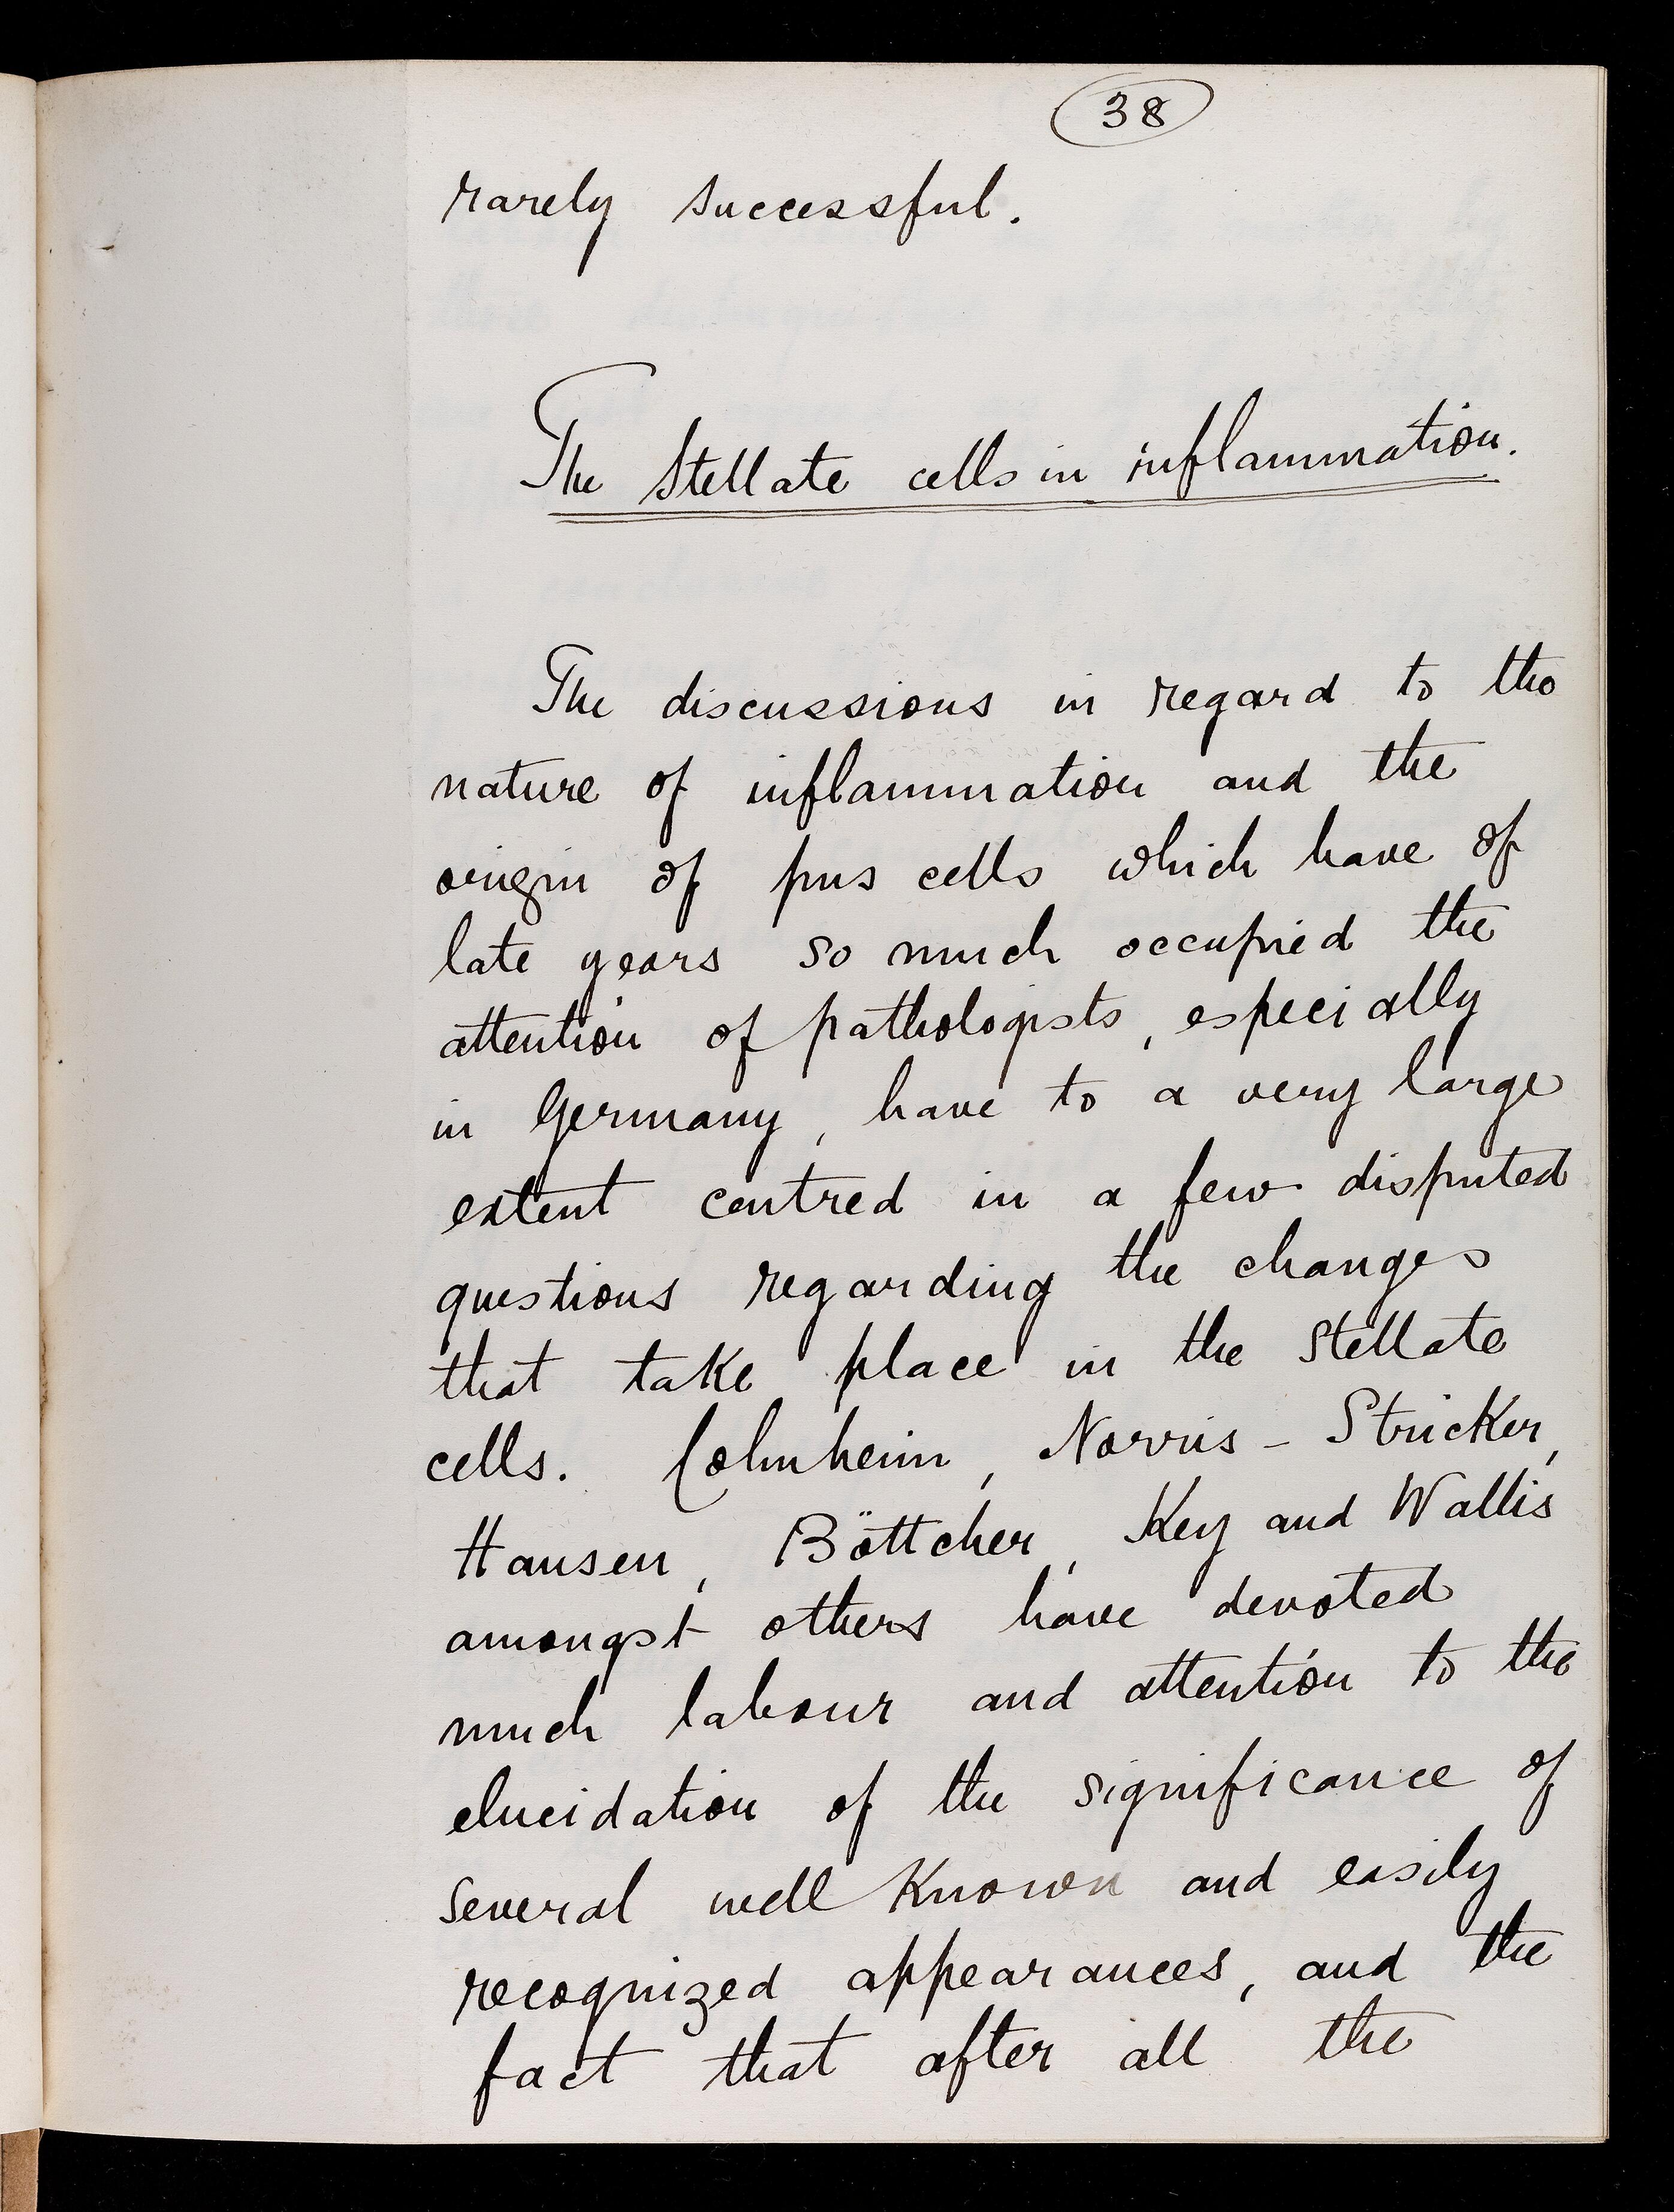 38
rarely successful.
The Stellate cells in inflammation.
The discussions in regard to the
nature of inflammation and the
origin of pus cells which have of
late years so much occupied the
attention of pathologists, especially
in Germany, have to a very large
extent centred in a few disputed
questions regarding the changes
that take place in the stellate
cells. Cohnheim, Norris - Stricker,
Hansen, Böttcher, Key and Wallis
amongst others have devoted
much labour and attention to the
elucidation of the significance of
several well known and easily
recognized appearances, and the
fact that after all the